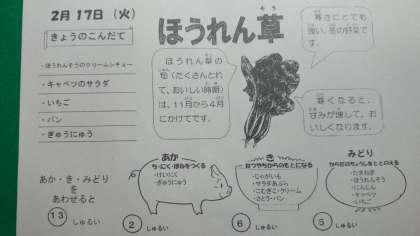 2月 17日 (火)
きょうのこんだて
・ほうれんそうのクリームシチュー
・キャベツのサラダ
・いちご
・パン
・ぎゅうにゅう
ほうれん草
そう
寒さにとても
強い、冬の野菜です。
ほうれん草の
旬(たくさんとれ
て、おいしい時期)
は、11月から4月
にかけてです。
寒くなると、
甘みが増して、お
いしくなります。
あか・き・みどり
を
あわせると
13 しゅるい
あか
ち・にく・ほねをつくる
・けいにく
・ぎゅうにゅう
2 しゅるい
き
ねつやちからのもとになる
・じゃがいも
・サラダあぶら
・こむぎこ・クリーム
・さとう・パン
6 しゅるい
みどり
からだのちょうしをととのえる
・たまねぎ
・ほうれんそう
・にんじん
・キャベツ
・いちご
5 しゅるい